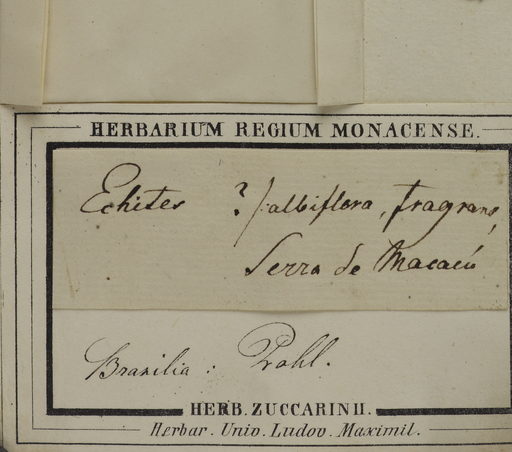 HERBARIUM REGIUM MONACENSE.
Echites ? /: albiflora, fragrans,
Serra de Macacú
Brasilia : Pohl.
HERB. ZUCCARINII.
Herbar. Univ. Ludov. Maximil.